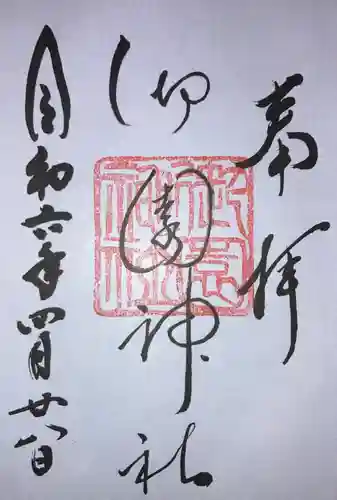 奉拝
祇園神社
令和六年四月廿八日